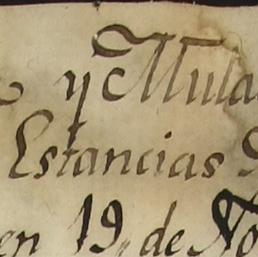 y Mula
Estancias
en 19, de No